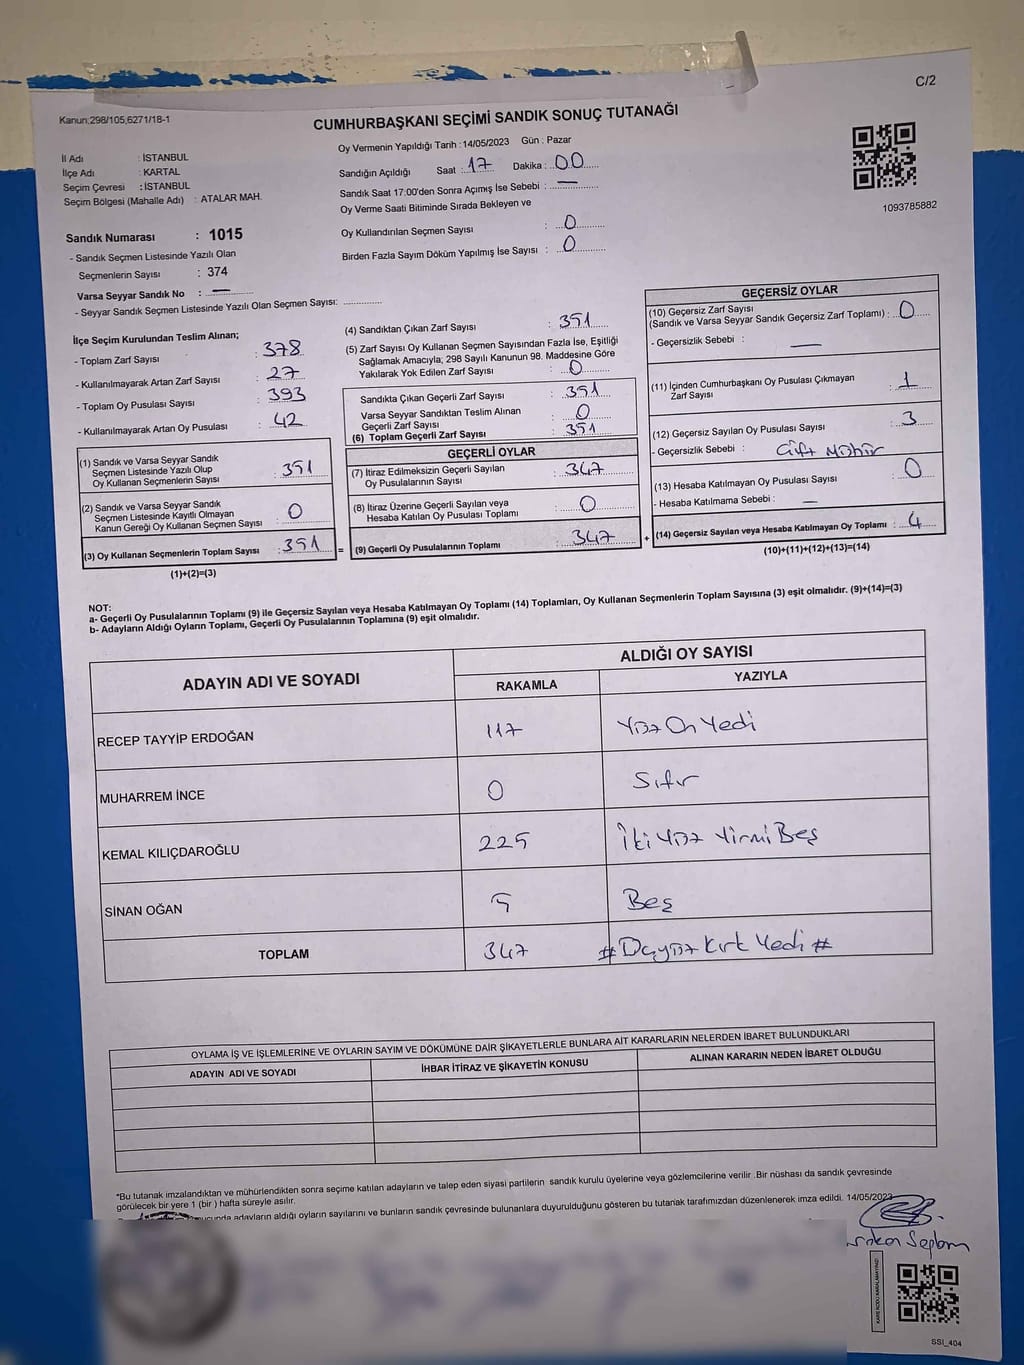 C/2
Kanun:298/105,6271/18-1
CUMHURBAŞKANI SEÇİMİ SANDIK SONUÇ TUTANAĞI
İl Adı : İSTANBUL
İlçe Adı : KARTAL
Seçim Çevresi : İSTANBUL
Seçim Bölgesi (Mahalle Adı) : ATALAR MAH.
Oy Vermenin Yapıldığı Tarih : 14/05/2023 Gün : Pazar
Sandığın Açıldığı Saat : 17 Dakika : 00
Sandık Saat 17:00'den Sonra Açımış İse Sebebi : —
Oy Verme Saati Bitiminde Sırada Bekleyen ve
Oy Kullandırılan Seçmen Sayısı : 0
Birden Fazla Sayım Döküm Yapılmış İse Sayısı : 0
1093785882
Sandık Numarası : 1015
- Sandık Seçmen Listesinde Yazılı Olan
Seçmenlerin Sayısı : 374
Varsa Seyyar Sandık No : —
- Seyyar Sandık Seçmen Listesinde Yazılı Olan Seçmen Sayısı: ............
İlçe Seçim Kurulundan Teslim Alınan;
- Toplam Zarf Sayısı : 378
- Kullanılmayarak Artan Zarf Sayısı : 27
- Toplam Oy Pusulası Sayısı : 393
- Kullanılmayarak Artan Oy Pusulası : 42
(1) Sandık ve Varsa Seyyar Sandık
Seçmen Listesinde Yazılı Olup
Oy Kullanan Seçmenlerin Sayısı : 351
(2) Sandık ve Varsa Seyyar Sandık
Seçmen Listesinde Kayıtlı Olmayan
Kanun Gereği Oy Kullanan Seçmen Sayısı : 0
(3) Oy Kullanan Seçmenlerin Toplam Sayısı : 351
(1)+(2)=(3)
(4) Sandıktan Çıkan Zarf Sayısı : 351
(5) Zarf Sayısı Oy Kullanan Seçmen Sayısından Fazla İse, Eşitliği
Sağlamak Amacıyla; 298 Sayılı Kanunun 98. Maddesine Göre
Yakılarak Yok Edilen Zarf Sayısı : 0
Sandıkta Çıkan Geçerli Zarf Sayısı : 351
Varsa Seyyar Sandıktan Teslim Alınan
Geçerli Zarf Sayısı : 0
(6) Toplam Geçerli Zarf Sayısı : 351
GEÇERLİ OYLAR
(7) İtiraz Edilmeksizin Geçerli Sayılan
Oy Pusulalarının Sayısı : 347
(8) İtiraz Üzerine Geçerli Sayılan veya
Hesaba Katılan Oy Pusulası Toplamı : 0
= (9) Geçerli Oy Pusulalarının Toplamı : 347
GEÇERSİZ OYLAR
(10) Geçersiz Zarf Sayısı
(Sandık ve Varsa Seyyar Sandık Geçersiz Zarf Toplamı) : 0
- Geçersizlik Sebebi : —
(11) İçinden Cumhurbaşkanı Oy Pusulası Çıkmayan
Zarf Sayısı : 1
(12) Geçersiz Sayılan Oy Pusulası Sayısı : 3
- Geçersizlik Sebebi : Çift Mühür
(13) Hesaba Katılmayan Oy Pusulası Sayısı : 0
- Hesaba Katılmama Sebebi : —
+ (14) Geçersiz Sayılan veya Hesaba Katılmayan Oy Toplamı : 4
(10)+(11)+(12)+(13)=(14)
NOT:
a- Geçerli Oy Pusulalarının Toplamı (9) ile Geçersiz Sayılan veya Hesaba Katılmayan Oy Toplamı (14) Toplamları, Oy Kullanan Seçmenlerin Toplam Sayısına (3) eşit olmalıdır. (9)+(14)=(3)
b- Adayların Aldığı Oyların Toplamı, Geçerli Oy Pusulalarının Toplamına (9) eşit olmalıdır.
ADAYIN ADI VE SOYADI ALDIĞI OY SAYISI
RAKAMLA YAZIYLA
RECEP TAYYİP ERDOĞAN 117 Yüz On Yedi
MUHARREM İNCE 0 Sıfır
KEMAL KILIÇDAROĞLU 225 İki Yüz Yirmi Beş
SİNAN OĞAN 5 Beş
TOPLAM 347 # Üçyüz Kırk Yedi #
OYLAMA İŞ VE İŞLEMLERİNE VE OYLARIN SAYIM VE DÖKÜMÜNE DAİR ŞİKAYETLERLE BUNLARA AİT KARARLARIN NELERDEN İBARET BULUNDUKLARI
ADAYIN ADI VE SOYADI İHBAR İTİRAZ VE ŞİKAYETİN KONUSU ALINAN KARARIN NEDEN İBARET OLDUĞU
*Bu tutanak imzalandıktan ve mühürlendikten sonra seçime katılan adayların ve talep eden siyasi partilerin sandık kurulu üyelerine veya gözlemcilerine verilir. Bir nüshası da sandık çevresinde
görülecek bir yere 1 (bir) hafta süreyle asılır.
adayların aldığı oyların sayılarını ve bunların sandık çevresinde bulunanlara duyurulduğunu gösteren bu tutanak tarafımızdan düzenlenerek imza edildi. 14/05/2023
SSI_404